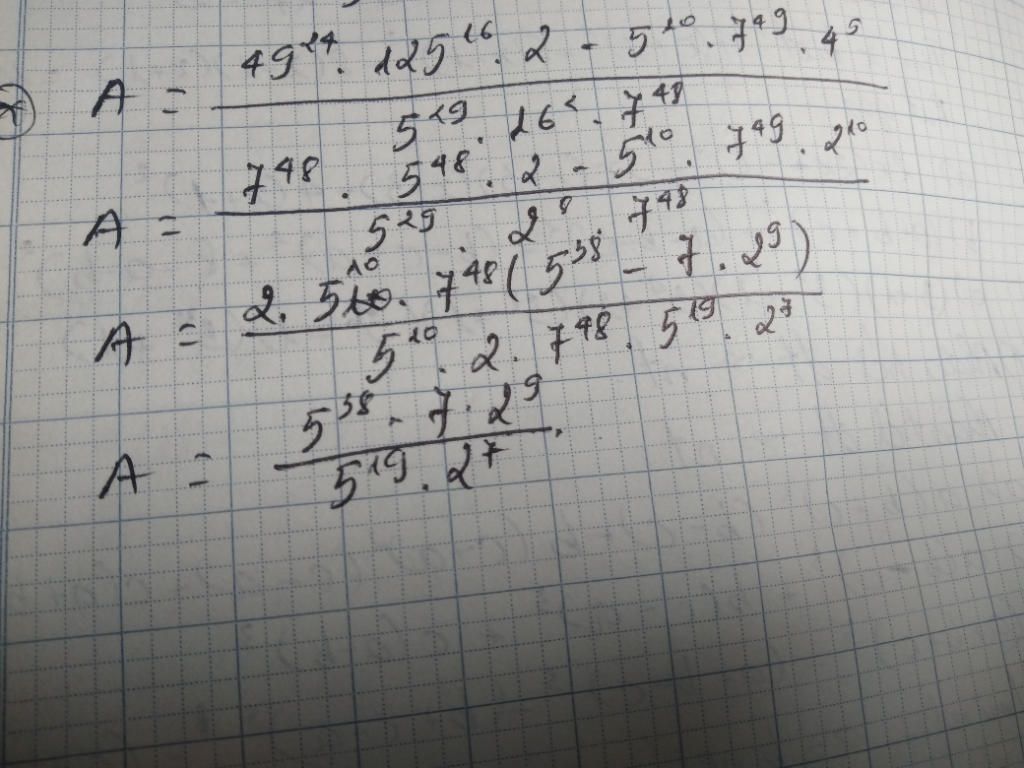 A = \frac{49^{24} \cdot 125^{16} \cdot 2 - 5^{10} \cdot 7^{49} \cdot 4^{5}}{5^{29} \cdot 16^{2} \cdot 7^{48}}
A = \frac{7^{48} \cdot 5^{48} \cdot 2 - 5^{10} \cdot 7^{49} \cdot 2^{10}}{5^{29} \cdot 2^{8} \cdot 7^{48}}
A = \frac{2 \cdot 5^{10} \cdot 7^{48} ( 5^{38} - 7 \cdot 2^{9} )}{5^{10} \cdot 2 \cdot 7^{48} \cdot 5^{19} \cdot 2^{7}}
A = \frac{5^{38} - 7 \cdot 2^{9}}{5^{19} \cdot 2^{7}} .